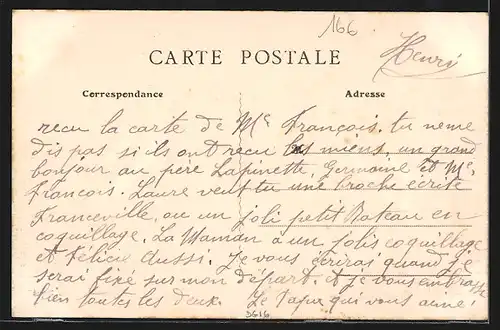 166
Henri
CARTE POSTALE
Correspondance
Adresse
recu la carte de Me François. tu neme
dis pas si ils ont recu les miens, un grand
bonjour au père Lapinette, Germaine et Me
Francois. Laure veut tu une broche écrite
Franceville, ou un joli petit Bateau en
coquillage. La Maman a un jolis coquillage
et Félicie Aussi. Je vous écrirai quand je
serai fixé sur mon départ. et je vous embrasse
bien toutes les deux. Le Papa qui vous aime!
3616